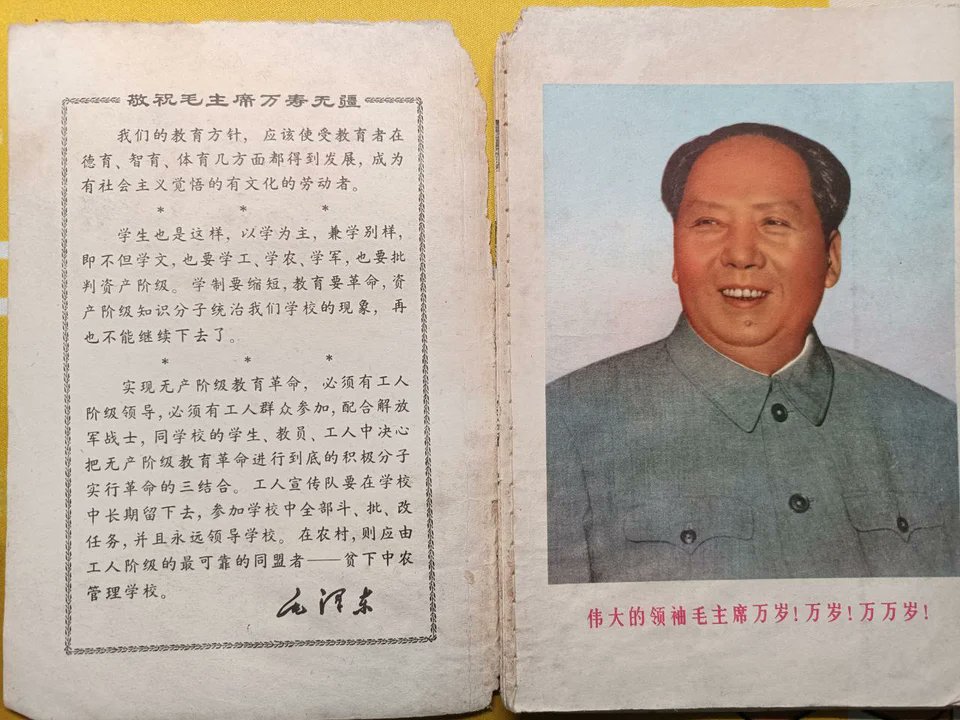 敬祝毛主席万寿无疆
我们的教育方针，应该使受教育者在
德育、智育、体育几方面都得到发展，成为
有社会主义觉悟的有文化的劳动者。
* * *
学生也是这样，以学为主，兼学别样，
即不但学文，也要学工、学农、学军，也要批
判资产阶级。学制要缩短，教育要革命，资
产阶级知识分子统治我们学校的现象，再
也不能继续下去了。
* * *
实现无产阶级教育革命，必须有工人
阶级领导，必须有工人群众参加，配合解放
军战士，同学校的学生、教员、工人中决心
把无产阶级教育革命进行到底的积极分子
实行革命的三结合。工人宣传队要在学校
中长期留下去，参加学校中全部斗、批、改
任务，并且永远领导学校。在农村，则应由
工人阶级的最可靠的同盟者——贫下中农
管理学校。
毛泽东
伟大的领袖毛主席万岁！万岁！万万岁！